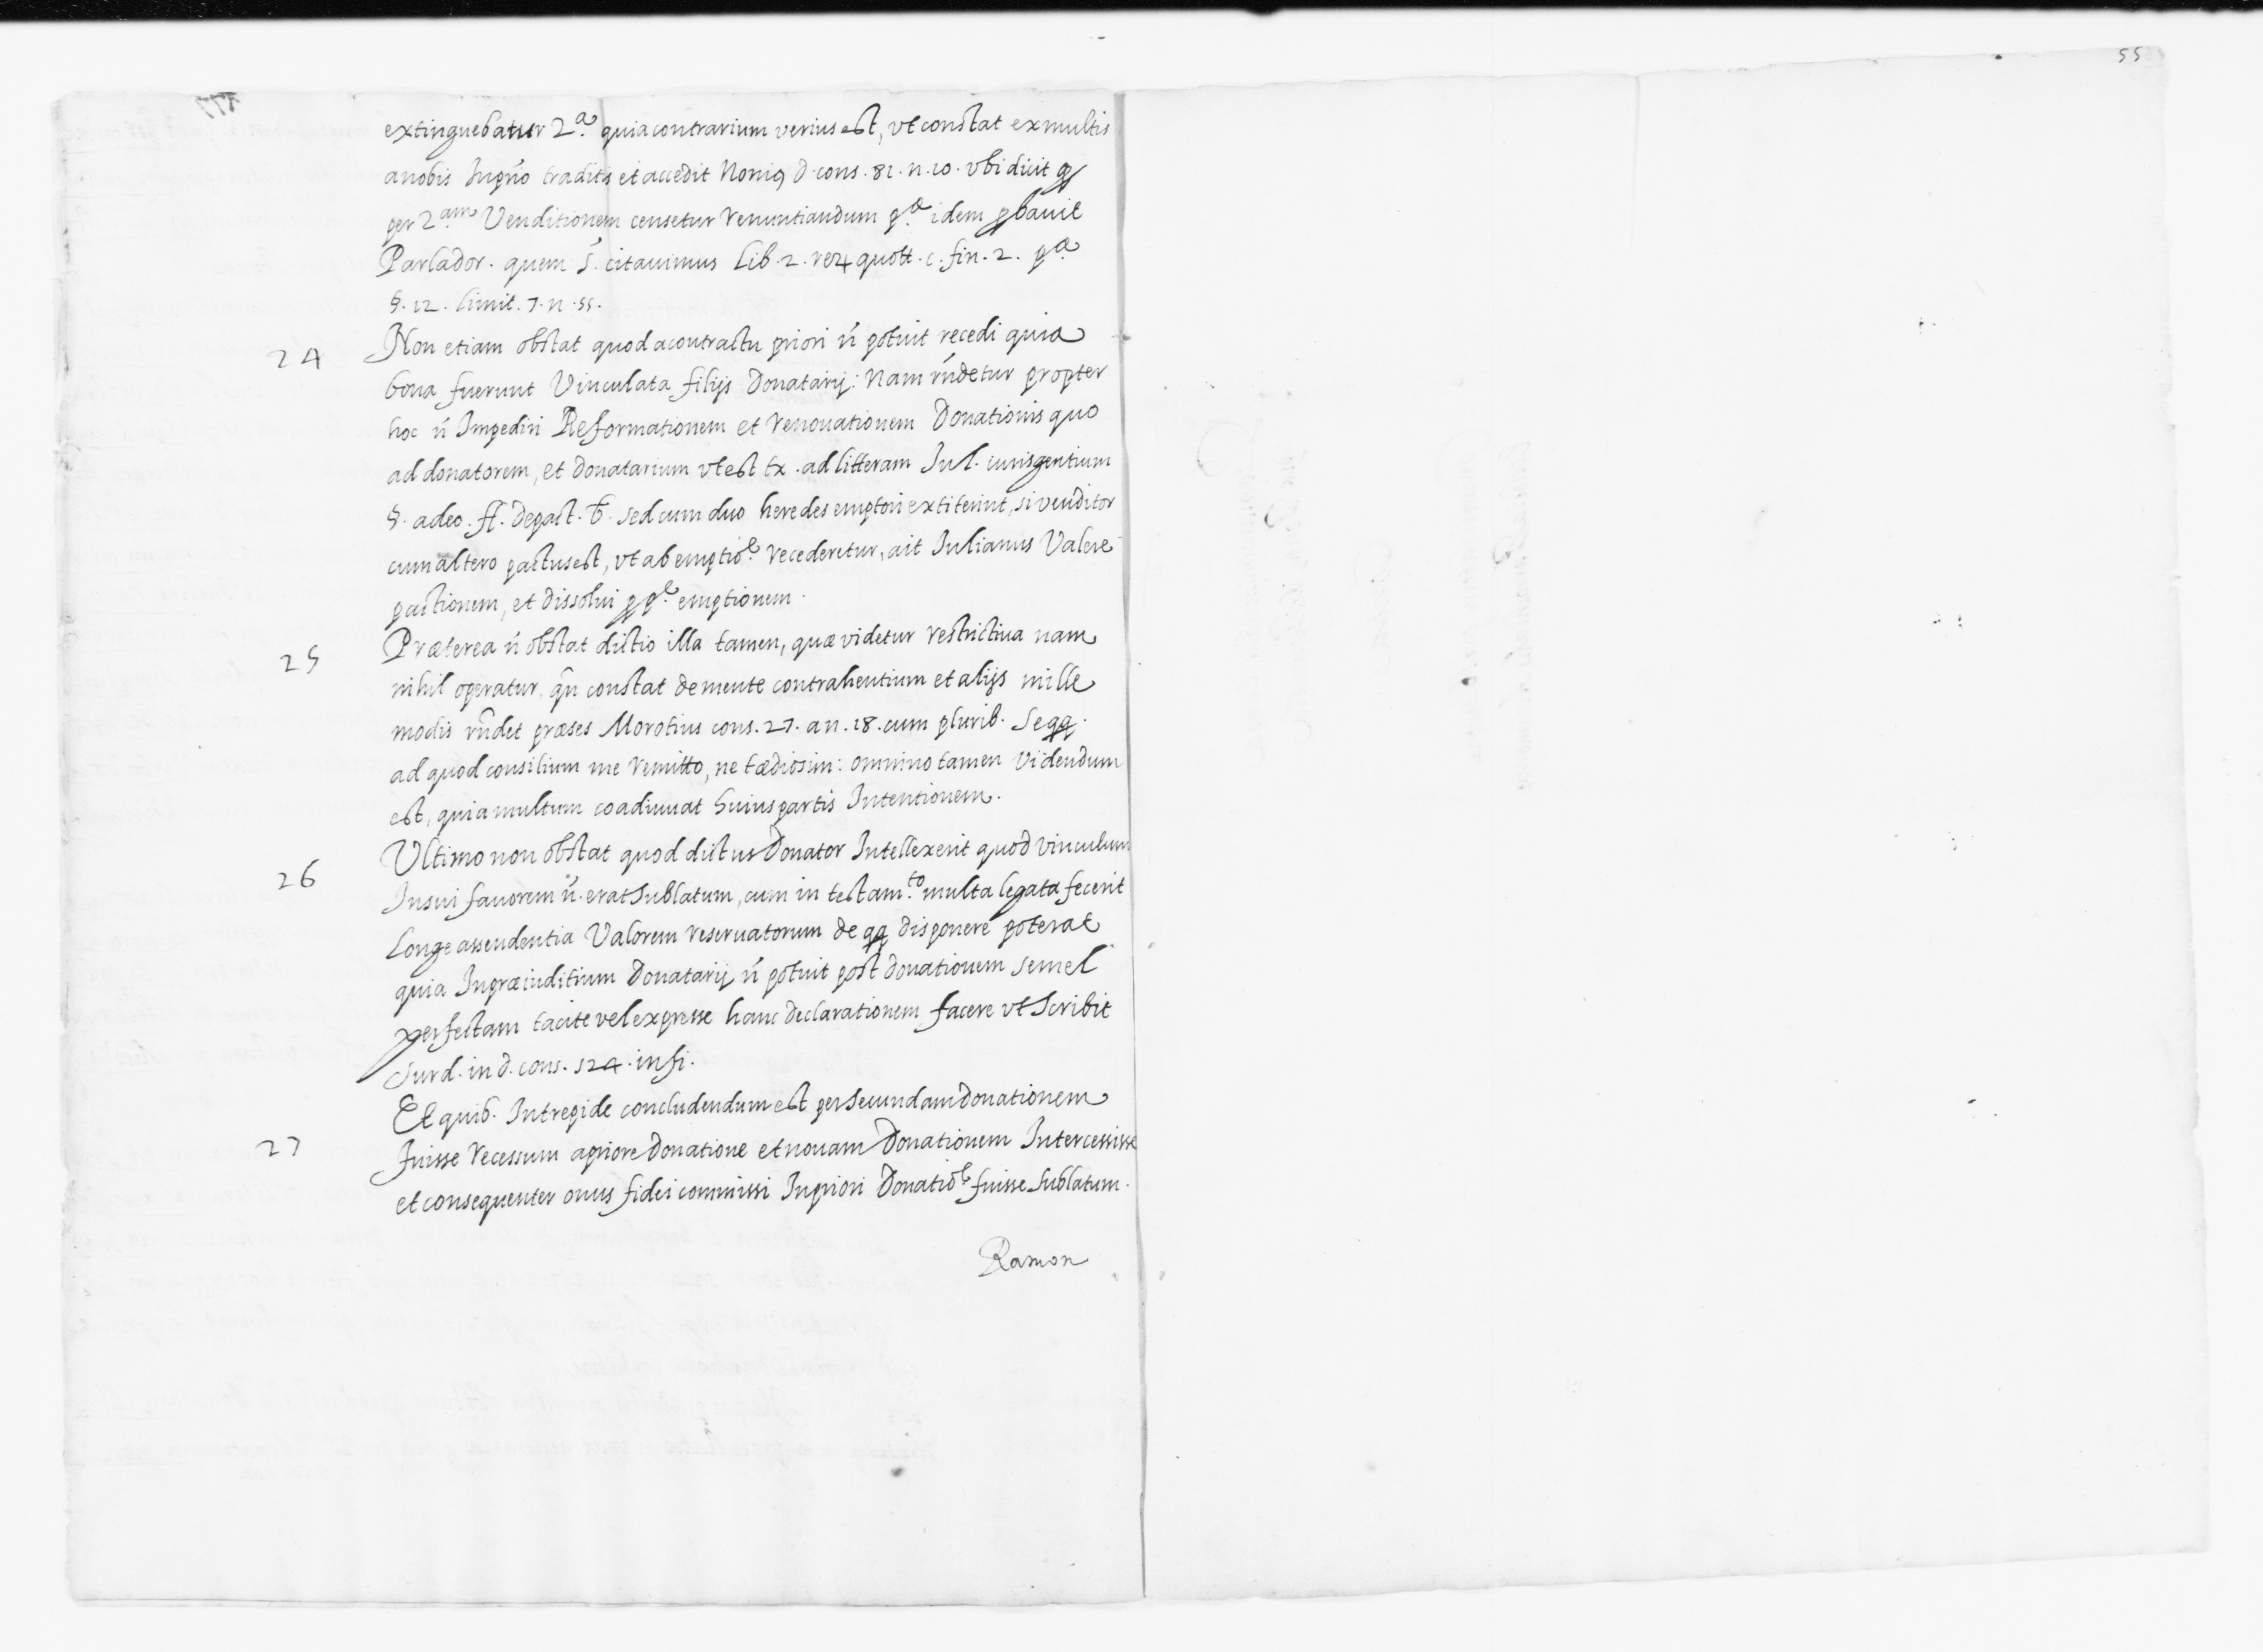 55
177
extinguebatur 2.ª quia contrarium verius est, vt constat ex multis
a nobis Inpño traditis et accedit Noniꝰ d. cons. 81. n. 10. vbi dicit ꝙ
per 2.am Venditionem censetur renuntiandum p.ª idem ꝓbauit
Parlador. quem s. citauimus Lib. 2. reꝝ quott. c. fin. 2. p.ª
§. 12. limit. 7. n. 55.
24 Non etiam obstat quod a contractu priori ñ potuit recedi quia
bona fuerunt Vinculata filijs Donatarij: Nam rñdetur propter
hoc ñ Impediri Reformationem et renouationem Donationis quo
ad donatorem, et donatarium vt est tx. ad litteram In l. iurisgentium
§. adeo. ff. de pact. ƀ. sed cum duo heredes emptori extiterint, si venditor
cum altero pactus est, vt ab emptio.e recederetur, ait Iulianus Valere
pactionem, et dissolui ꝓ p.e emptionem.
25 Præterea ñ obstat dictio illa tamen, quæ videtur restrictiua nam
nihil operatur, qñ constat de mente contrahentium et alijs mille
modis rñdet præses Morotius cons. 27. a n. 18. cum plurib. seqq.
ad quod consilium me remitto, ne tædiosim: omnino tamen Videndum
est, quia multum coadiuuat huius partis Intentionem.
26 Ultimo non obstat quod dictus Donator Intellexerit quod vinculum
In sui fauorem ñ. erat sublatum, cum in testam.to multa legata fecerit
Longe assendentia Valorem reseruatorum de qq disponere poterat
quia In præiuditium Donatarij ñ potuit post donationem semel
perfectam tacite vel expresse hanc declarationem facere vt scribit
Surd. in d. cons. 524. in fi.
27 Et quib. Intrepide concludendum est per secundam donationem
fuisse recessum a priore Donatione et nouam Donationem Intercessisse
et consequenter onus fidei commissi In priori Donatio.e fuisse sublatum.
Ramon